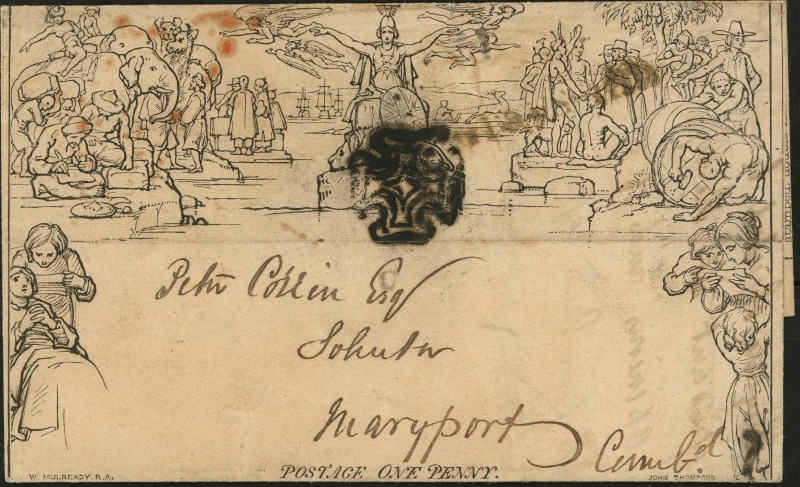 Peter Collin Esqr
Solicitor
Maryport
Cumbd
POSTAGE ONE PENNY.
W. MULREADY. R.A.
JOHN THOMPSON